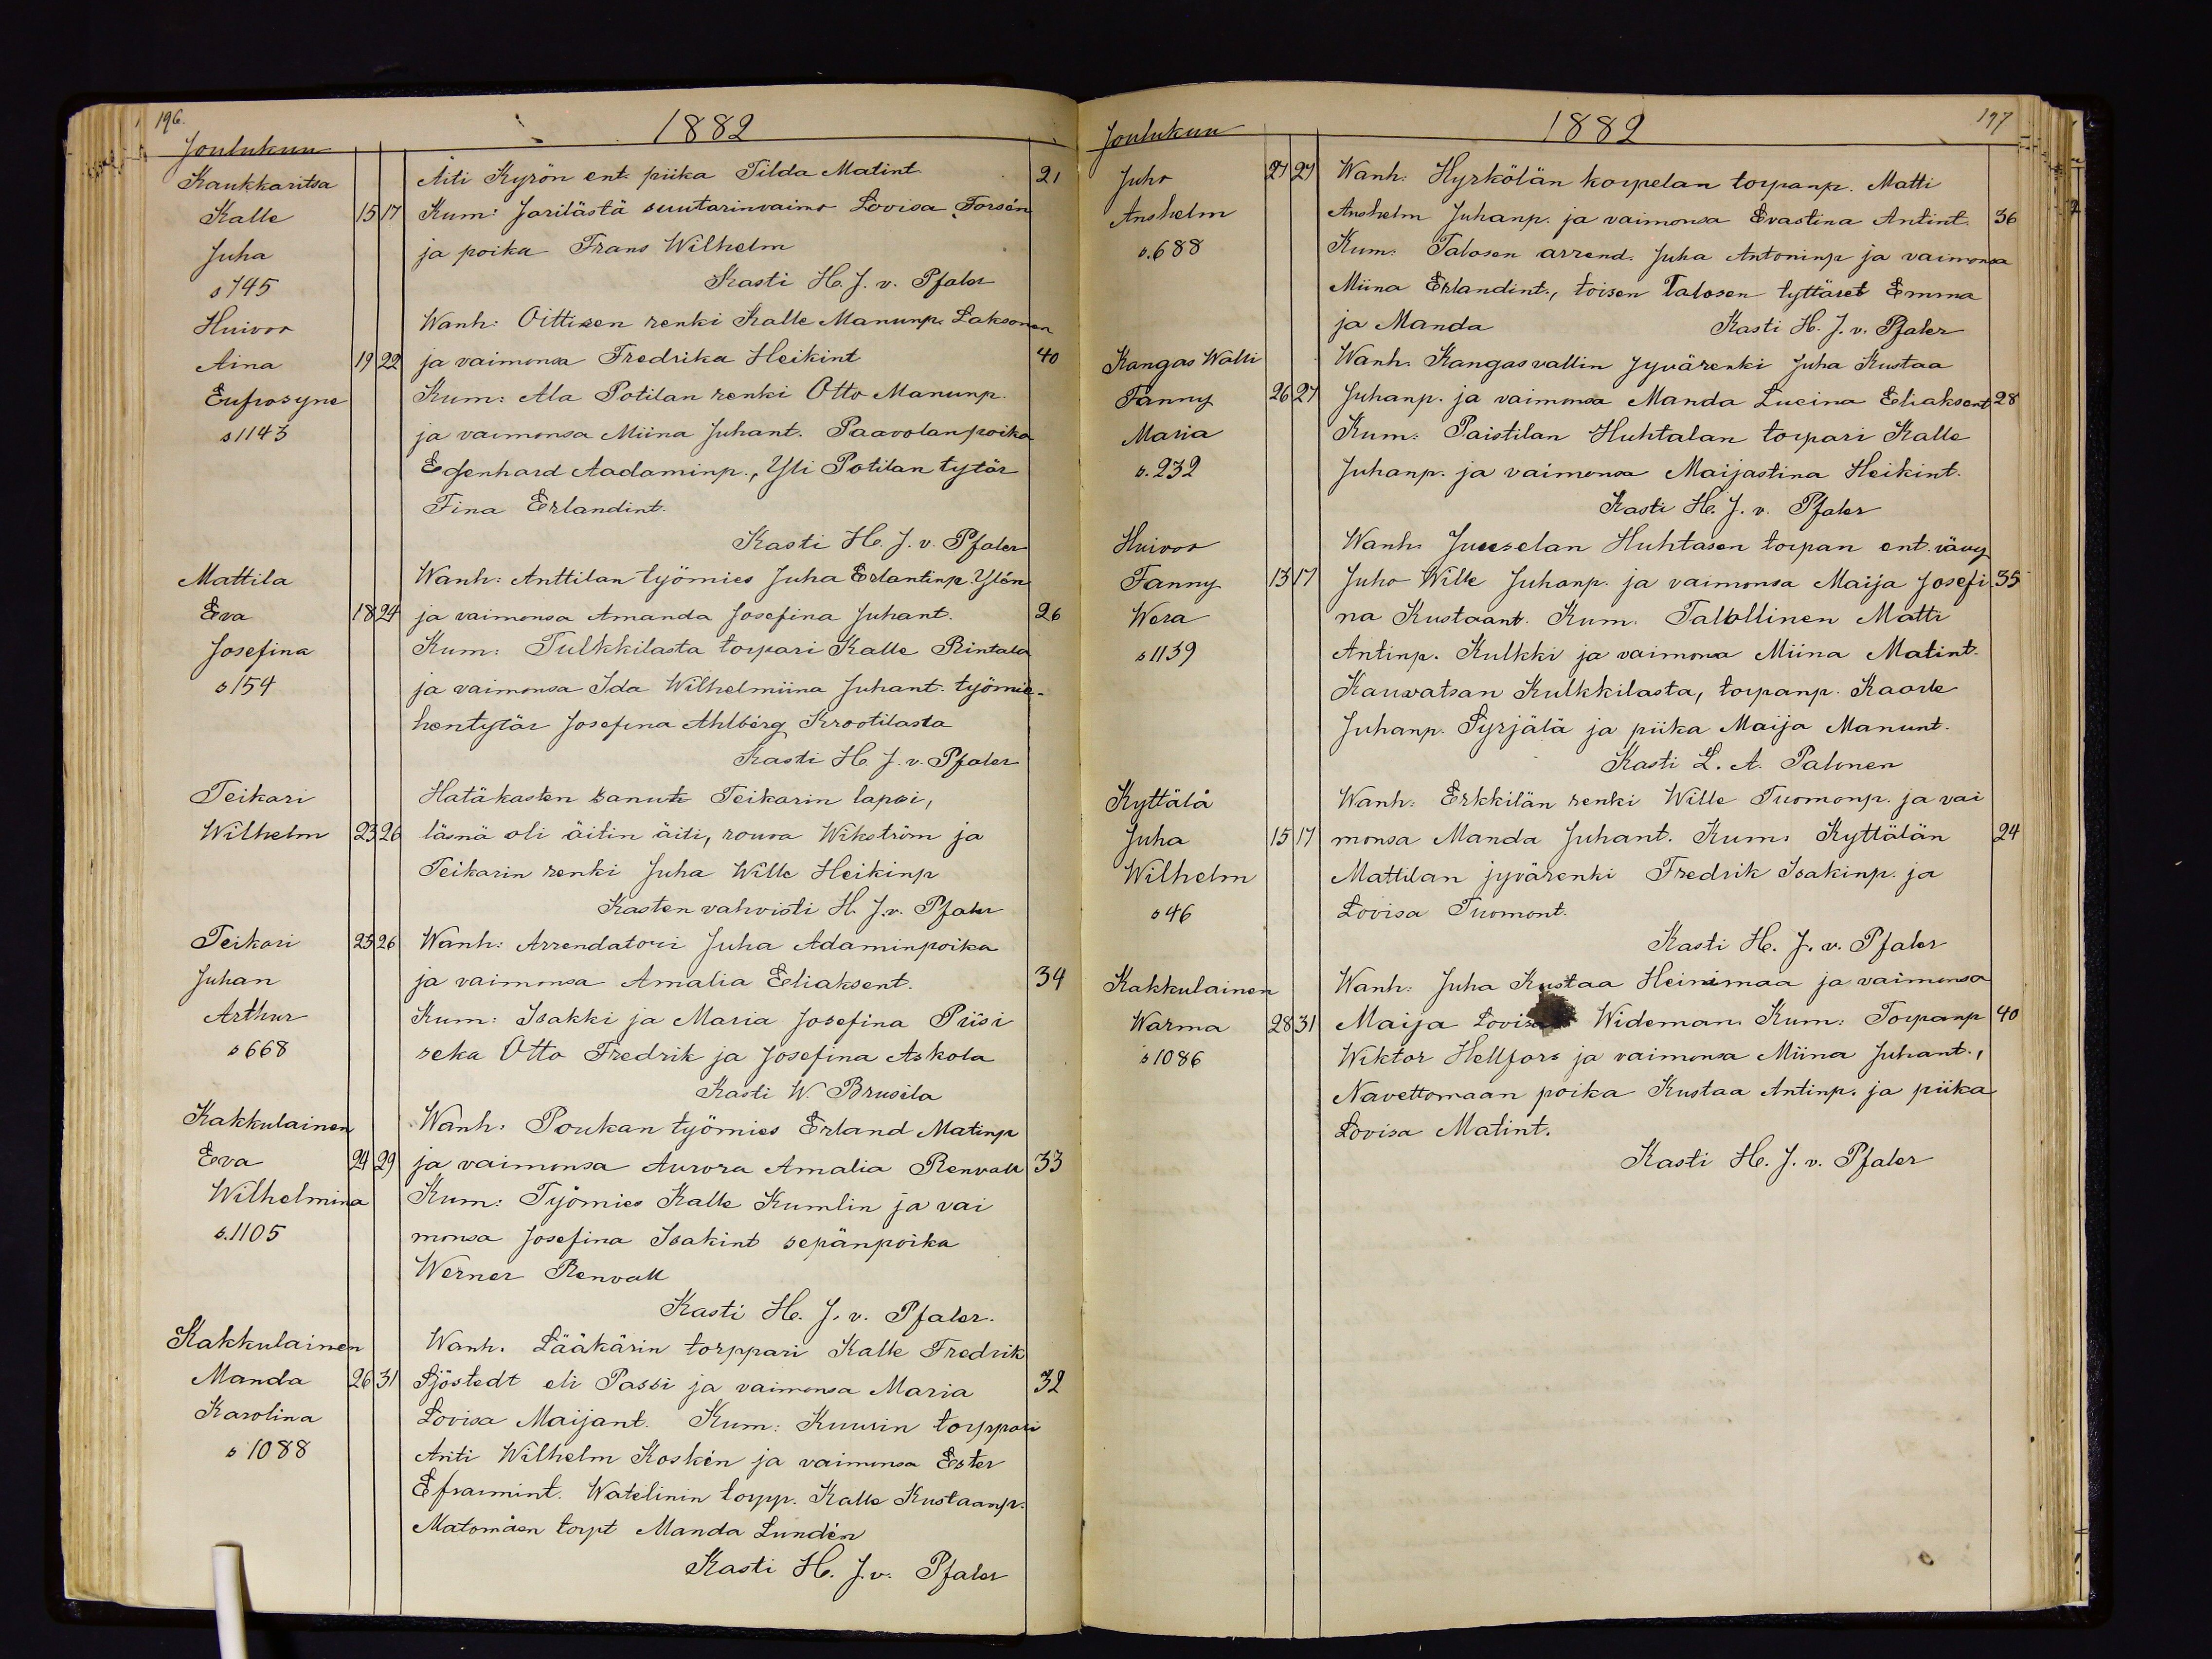 196.
1882
Joulukuu
Kaukkaritsa Äiti Kyrön ent. piika Tilda Matint. 21
Kalle 15 17 Kum: Jarilästä suutarinvaimo Lovisa Forsén
Juha ja poika Frans Wilhelm
s 745 Kasti H. J. v. Pfaler
Huivoo Wanh: Oittisen renki Kalle Manunp. Laksonen
Aina 19 22 ja vaimonsa Fredrika Heikint 40
Eufrosyne Kum: Ala Potilan renki Otto Manunp.
s 1143 ja vaimonsa Miina Juhant. Paavolanpoika
Egenhard Aadaminp., Yli Potilan tytär
Fina Erlandint.
Kasti H. J. v. Pfaler
Mattila Wanh: Anttilan työmies Juha Erlantinp. Ylén
Eva 18 24 ja vaimonsa Amanda Josefina Juhant. 26
Josefina Kum: Tulkkilasta torpari Kalle Rintala
s 154 ja vaimonsa Ida Wilhelmiina Juhant. työmie-
hentytär Josefina Ahlberg Krootilasta
Kasti H. J. v. Pfaler
Teikari Hätäkasten sanut Teikarin lapsi,
Wilhelm 23 26 läsnä oli äitin äiti, rouva Wikström ja
Teikarin renki Juha Wille Heikinp
Kasten vahvisti H. J. v. Pfaler
Teikari 25 26 Wanh: Arrendatori Juha Adaminpoika
Juhan ja vaimonsa Amalia Eliaksent. 34
Arthur Kum: Isakki ja Maria Josefina Piisi
s 668 seka Otto Fredrik ja Josefina Askola
Kasti W. Brusila
Kakkulainen Wanh: Poukan työmies Erland Matinp
Eva 24 29 ja vaimonsa Aurora Amalia Renvall 33
Wilhelmina Kum: Työmies Kalle Kumlin ja vai
s. 1105 monsa Josefina Isakint sepänpoika
Werner Renvall
Kasti H. J. v. Pfaler.
Kakkulainen Wanh. Lääkärin torppari Kalle Fredrik
Manda 26 31 Sjöstedt eli Passi ja vaimonsa Maria 32
Karolina Lovisa Maijant. Kum: Kuusin torppari
s 1088 Anti Wilhelm Koskén ja vaimonsa Ester
Efraimint. Watelinin torpp. Kalle Kustaanp.
Matomäen torpt Manda Lundén
Kasti H. J. v. Pfaler
197
1882
Joulukuu
Juho 27 27 Wanh: Hyrkölän korpelan torpanp. Matti
Anshelm Anshelm Juhanp. ja vaimonsa Evastina Antint. 36
s. 688 Kum: Talosen arrend. Juha Antoninp ja vaimonsa
Miina Erlandint., toisen Talosen tyttäret Emma
ja Manda Kasti H. J. v. Pfaler
Kangas Walli Wanh. Kangasvallin jyvärenki Juha Kustaa
Fanny 26 27 Juhanp. ja vaimonsa Manda Lucina Eliaksent 28
Maria Kum: Paistilan Huhtalan torpari Kalle
s. 232 Juhanp. ja vaimonsa Maijastina Heikint.
Kasti H. J. v. Pfaler
Huivoo Wanh. Juuselan Huhtasen torpan ent. vävy
Fanny 13 17 Juho Wille Juhanp. ja vaimonsa Maija Josefi 35
Wera na Kustaant. Kum. Talollinen Matti
s 1139 Antinp. Kulkki ja vaimonsa Miina Matint.
Kauvatsan Kulkkilasta, torpanp. Kaarle
Juhanp. Syrjälä ja piika Maija Manunt.
Kasti L. A. Palonen
Kyttälä Wanh: Erkkilän renki Wille Tuomonp. ja vai
Juha 15 17 monsa Manda Juhant. Kum: Kyttälän 24
Wilhelm Mattilan jyvärenki Fredrik Isakinp. ja
s 46 Lovisa Tuomont.
Kasti H. J. v. Pfaler
Kakkulainen Wanh: Juha Kustaa Heinimaa ja vaimonsa
Warma 28 31 Maija Lovisa Wideman. Kum: Torpanp 40
s 1086 Wiktor Hellfors ja vaimonsa Miina Juhant.,
Navettomaan poika Kustaa Antinp. ja piika
Lovisa Matint.
Kasti H. J. v. Pfaler